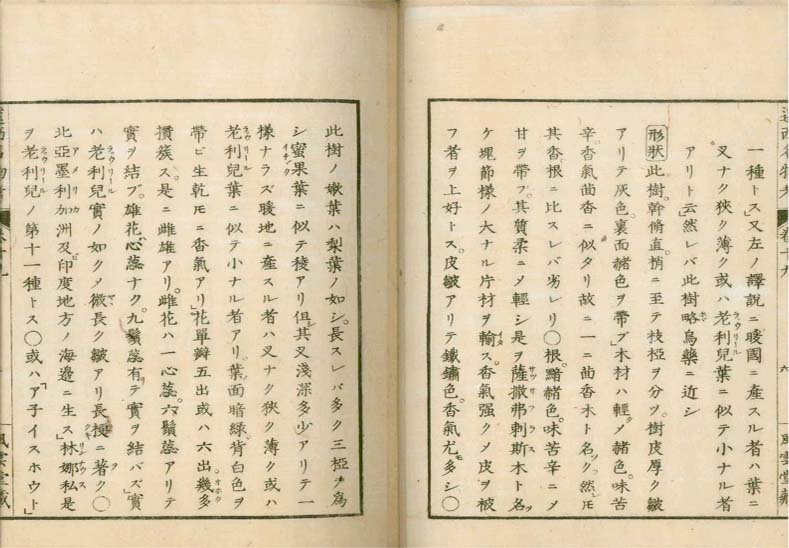 一種トス」又左ノ譯説ニ暖國ニ産スル者ハ葉ニ
叉ナク狹ク薄ク或ハ老利兒葉ニ似テ小ナル者
ラウリール
アリト云然レバ此樹略烏藥ニ近シ
ホボ
形狀 此樹幹脩直梢ニ至テ枝椏ヲ分ツ。樹皮厚ク皺
アリテ灰色。裏面赭色ヲ帶ブ」木材ハ輕〆赭色。味苦
辛。香氣茴香ニ似タリ故ニ一ニ茴香木ト名ク。然𪜈
其香根ニ比スレバ劣レリ〇根。黯赭色。味苦辛ニ〆
甘ヲ帶ブ。其質柔ニ〆輕シ是ヲ薩撒弗剌斯木ト名
サッサフラス
ケ塊節樣ノ大ナル片材ヲ輸ス。香氣强ク〆皮ヲ被
イタ
フ者ヲ上好トス。皮皺アリテ鐵鏽色。香氣尤多シ〇
遠西名物考
卷十九
六
風雲堂藏
此樹ノ嫩葉ハ梨葉ノ如シ。長スレバ多ク三椏ヲ爲
シ蜜果葉ニ似テ稜アリ但其叉淺深多少アリテ一
イチヂク
樣ナラズ暖地ニ産スル者ハ叉ナク狹ク薄ク或ハ
老利兒葉ニ似テ小ナル者アリ。葉面暗綠。背白色ヲ
ラウリール
帶ビ生乾𪜈ニ香氣アリ」花單瓣五出或ハ六出幾多
オホク
攢簇ス是ニ雌雄アリ。雌花ハ一心蕊。六鬚蕊アリテ
實ヲ結ブ。雄花心蕊ナク。九鬚蕊有テ實ヲ結バズ」實
ハ老利兒實ノ如ク〆微長ク皺アリ長梗ニ著ク〇
ラウリール
北亞墨利加洲及印度地方ノ海邊ニ生ス」林娜私是
アメリカ
リンナウス
ヲ老利兒ノ第十一種トス〇或ハ「ア子イスホウト」
ラウリール
卷十九
風雲堂藏